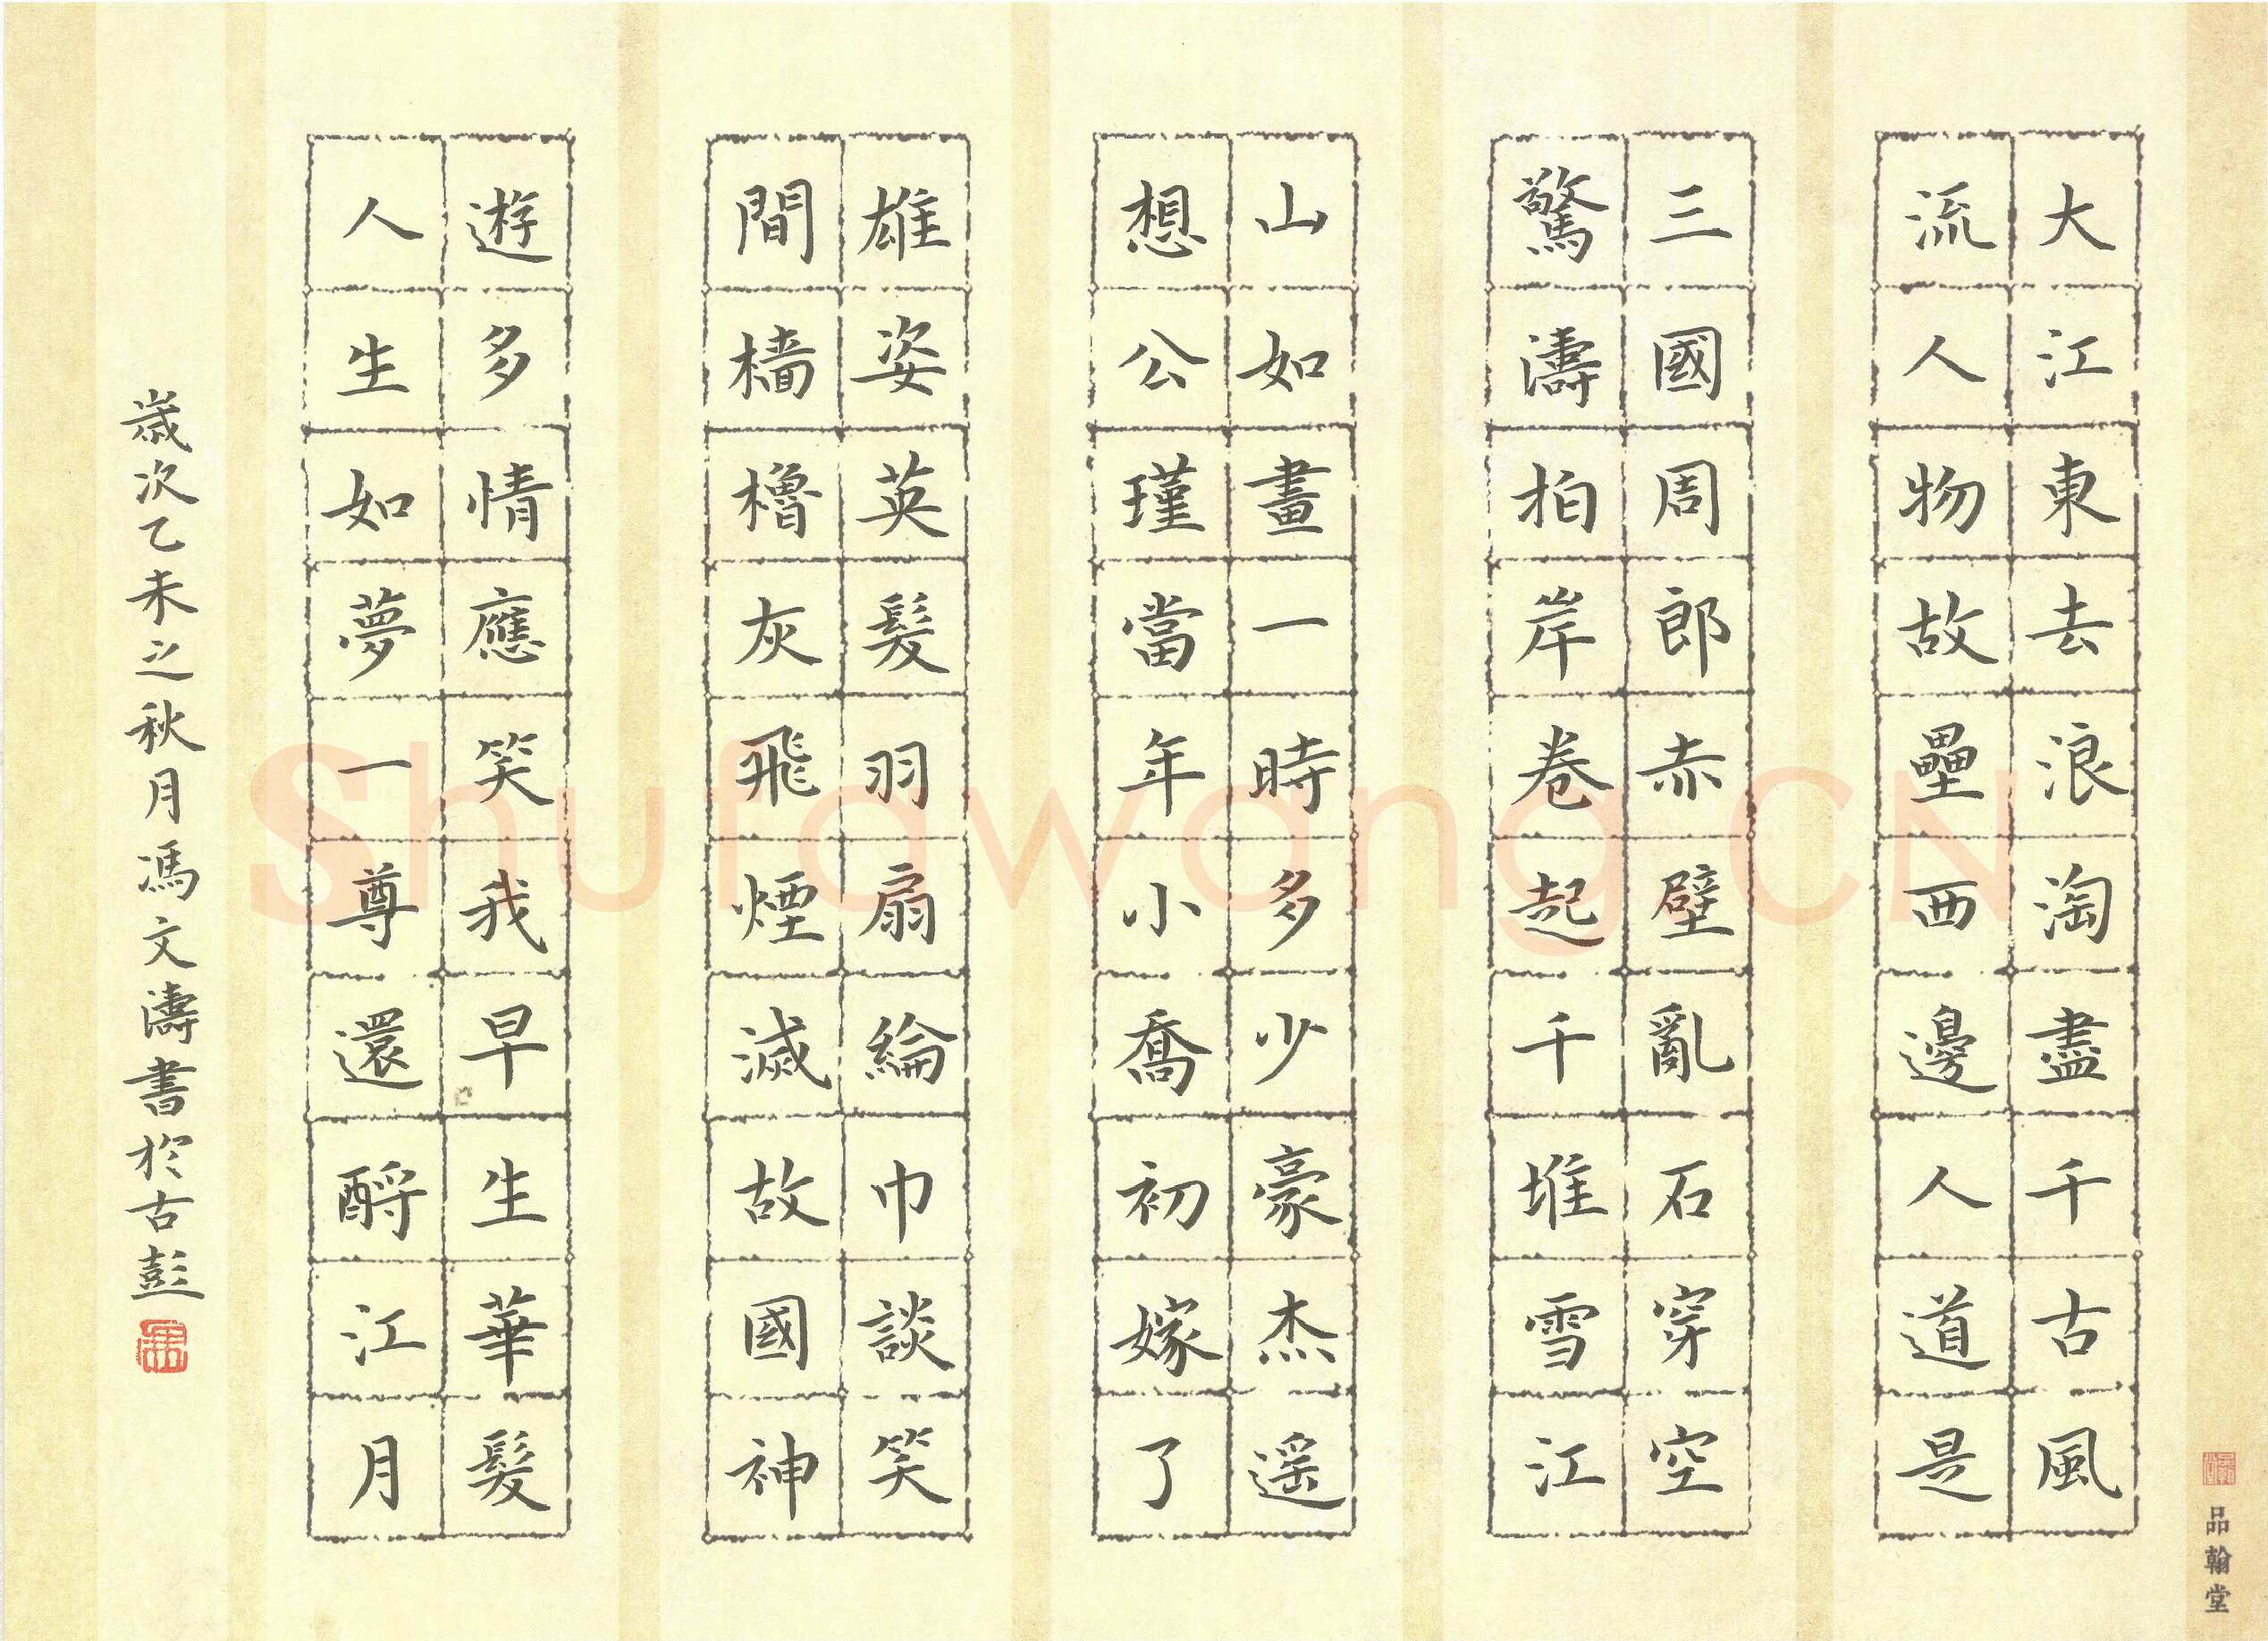 大江東去浪淘盡千古風
流人物故壘西邊人道是
三國周郎赤壁亂石穿空
驚濤拍岸卷起千堆雪江
山如畫一時多少豪杰遥
想公瑾當年小喬初嫁了
雄姿英髮羽扇綸巾談笑
間檣櫓灰飛煙滅故國神
遊多情應笑我早生華髮
人生如夢一尊還酹江月
歲次乙未之秋月馮文濤書於古彭
品翰堂
Shufawang.CN